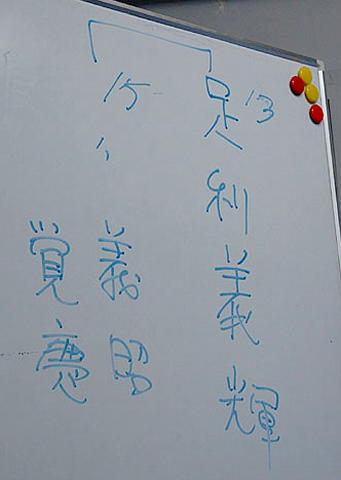 足利義輝 13
15 〃 義昭
覚慶